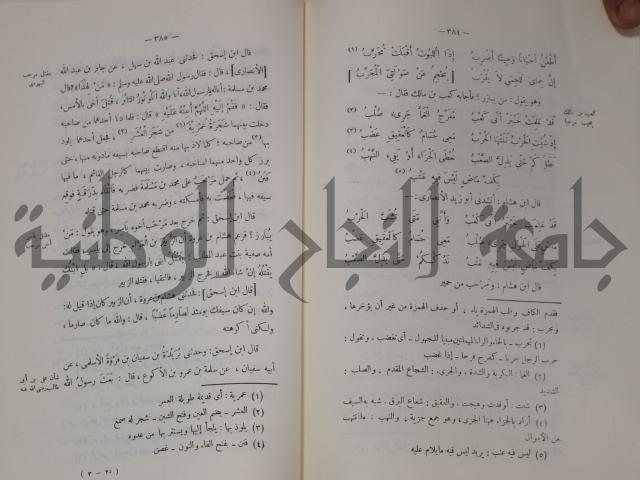 — ٣٨٤ —
أطعن أحيانا وحينا أضرب إذا الليوث أقبلت تحرب (١)
إن حماى للحمى لا يقرب يحجم عن صولتى المجرب
وهو يقول: من يبارز؟ فأجابه كعب بن مالك فقال:
كعب بن مالك يجيب مرحبا
قد علمت خيبر أنى كعب مفرج الغما جرىء صلب (٢)
إذ شبت الحرب تلتها الحرب معى حسام كالعقيق عضب (٣)
نطأكم حتى يذل الصعب نعطى الجزاء أو يفىء النهب (٤)
بكف ماض ليس فيه عتب (٥)
قال ابن هشام: أنشدنى أبو زيد الأنصارى:
قد علمت خيبر أنى كعب وأننى متى تشب الحرب
ماض على الهول جرىء صلب معى حسام كالعقيق عضب
بكف ماض ليس فيه عتب ندككم حتى يذل الصعب
قال ابن هشام: ومرحب من حمير
فقدم الكاف وقلب الهمزة ياء، أو حذف الهمزة من غير أن يؤخرها،
ومجرب: قد جربوه فى الشدائد
(١) تحرب - بالحاء والراء المهملتين مبنيا للمجهول - أى تغضب، وتقول:
حرب الرجل حربا - كفرح فرحا - إذا غضب
(٢) الغما: الكربة والشدة، والجرىء: الشجاع المقدم، والصلب:
الشديد
(٣) شبت: أوقدت وهيجت، والعقيق: شعاع البرق. شبه به السيف
(٤) أراد بالجزاء هنا الجزى، وهو جمع جزية، والنهب: ما انتهب
من الأموال
(٥) ليس فيه عتب: يريد ليس فيه ما يلام عليه
— ٣٨٥ —
قال ابن إسحق: فحدثنى عبد الله بن سهل، عن جابر بن عبد الله
مقتل مرحب اليهودى
[الأنصارى]، قال: فقال رسول الله صلى الله عليه وسلم: « من لهذا » فقال
محمد بن مسلمة: أنا له يا رسول الله، أنا والله الموتور الثائر، قتل أخى بالأمس،
فقال: « فقم إليه اللهم أعنه عليه » قال: فلما دنا أحدهما من صاحبه
دخلت بينهما شجرة عمرية (١) من شجر العشر (٢)، فجعل أحدهما يلوذ
بها (٣) من صاحبه؛ كلما لاذ بها منه اقتطع صاحبه بسيفه ما دونه منها، حتى
برز كل واحد منهما لصاحبه، وصارت بينهما كالرجل القائم، ما فيها
فنن (٤)، ثم حمل مرحب على محمد بن مسلمة فضربه فاتقاه بالدرقة فوقع
سيفه فيها، فعضت به فأمسكته، وضربه محمد بن مسلمة حتى قتله
قال ابن إسحق: ثم خرج بعد مرحب أخوه ياسر، وهو يقول: من
يبارز؟ فزعم هشام بن عروة أن الزبير بن العوام خرج إلى ياسر، فقالت
أمه صفية بنت عبد المطلب: يقتل ابنى يا رسول الله، قال: « بل ابنك
يقتله إن شاء الله » فخرج الزبير، فالتقيا، فقتله الزبير
[قال ابن إسحق]: فحدثنى هشام بن عروة، أن الزبير كان إذا قيل له:
والله إن كان سيفك يومئذ لصارما عضبا، قال: والله ما كان صارما،
ولكنى أكرهته
قال ابن إسحق: وحدثنى بريدة بن سفيان بن فروة الأسلمى، عن
أبيه سفيان، عن سلمة بن عمرو بن الأكوع، قال: بعث رسول الله
(١) عمرية: أى قديمة طويلة العمر
(٢) العشر - بضم العين وفتح الشين - شجر له صمغ
(٣) يلوذ بها: يلجأ إليها ويستتر بها من عدوه
(٤) فنن - بفتح الفاء والنون - غصن
(٢٥ - ٣)
جامعة النجاح الوطنية